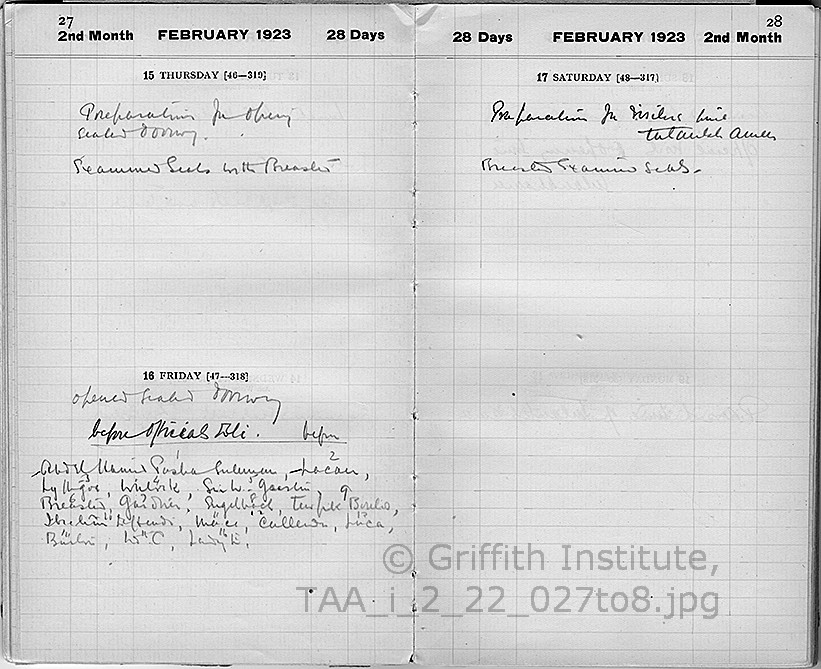 27
2nd Month FEBRUARY 1923 28 Days
15 THURSDAY [46—319]
Preparation for opening
sealed doorway.
Examined Seals with Breasted
16 FRIDAY [47—318]
opened sealed doorway
before officials before
Abdel Hamid Pasha Suleman, Lacau,
Lythgoe, Winlock, Sir W. Garstin,
Breasted, Gardiner, Engelbach, Tewfik Boulos,
Ibrahim Effendi, Mace, Callender, Lucas,
Burton, Ld. C, Lady E.
28
28 Days FEBRUARY 1923 2nd Month
17 SATURDAY [48—317]
Preparation for
Breasted Examined Seals.
© Griffith Institute,
TAA_i_2_22_027to8.jpg